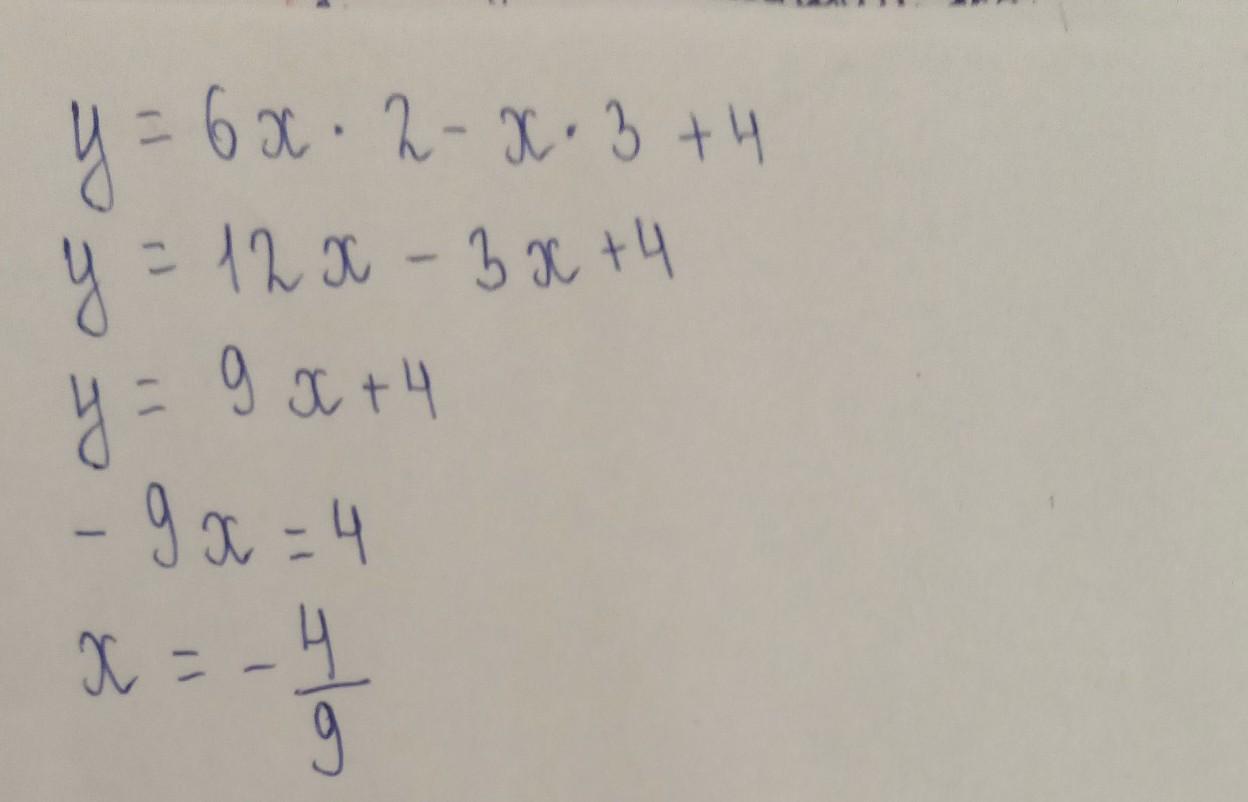 y = 6x · 2 - x · 3 + 4
y = 12x - 3x + 4
y = 9x + 4
- 9x = 4
x = - 4/9